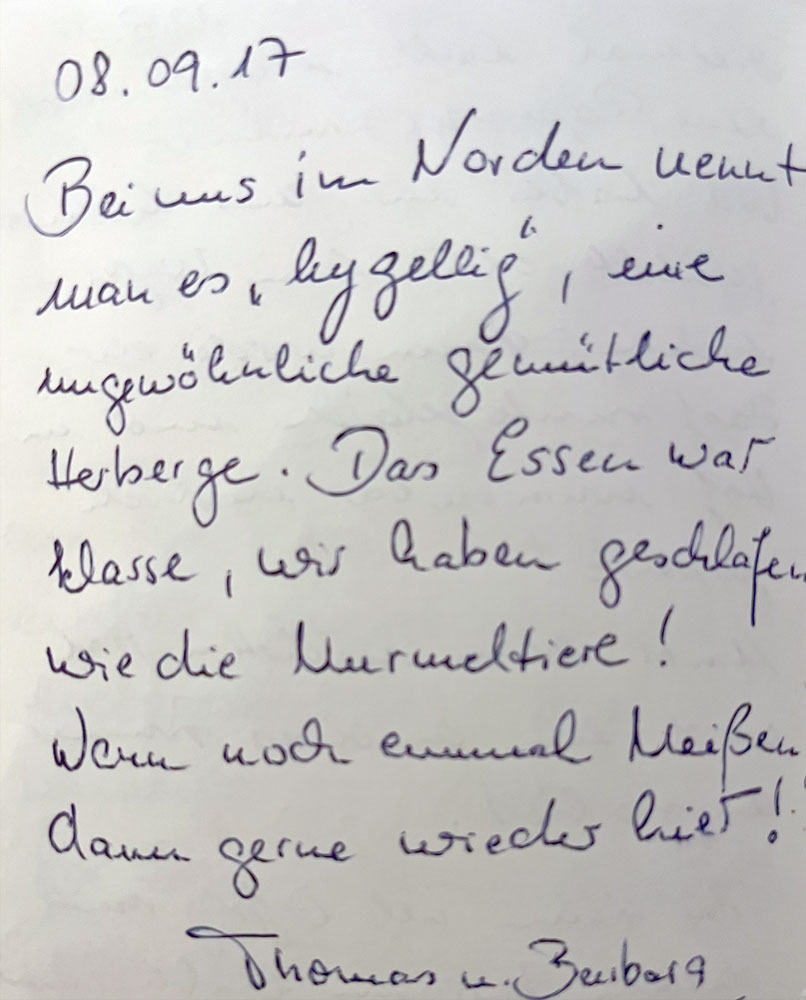 08.09.17
Bei uns im Norden nennt
man es „hygellig“, eine
ungewöhnliche gemütliche
Herberge. Das Essen war
klasse, wir haben geschlafen
wie die Murmeltiere!
Wenn noch einmal Meißen
dann gerne wieder hier!
Thomas u.